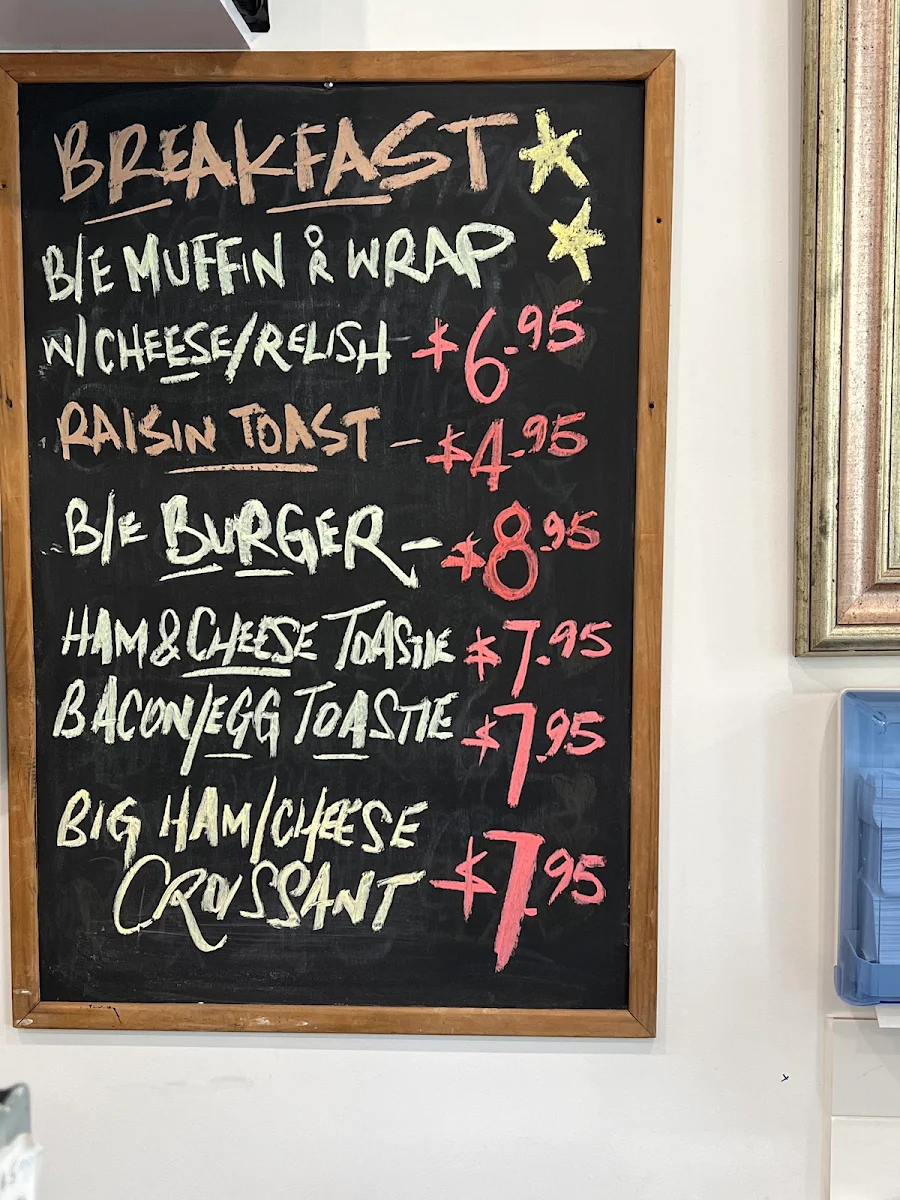 BREAKFAST
B/E MUFFIN OR WRAP
W/CHEESE/RELISH - $6.95
RAISIN TOAST - $4.95
B/E BURGER - $8.95
HAM & CHEESE TOASTIE $7.95
BACON/EGG TOASTIE $7.95
BIG HAM/CHEESE
CROISSANT - $7.95